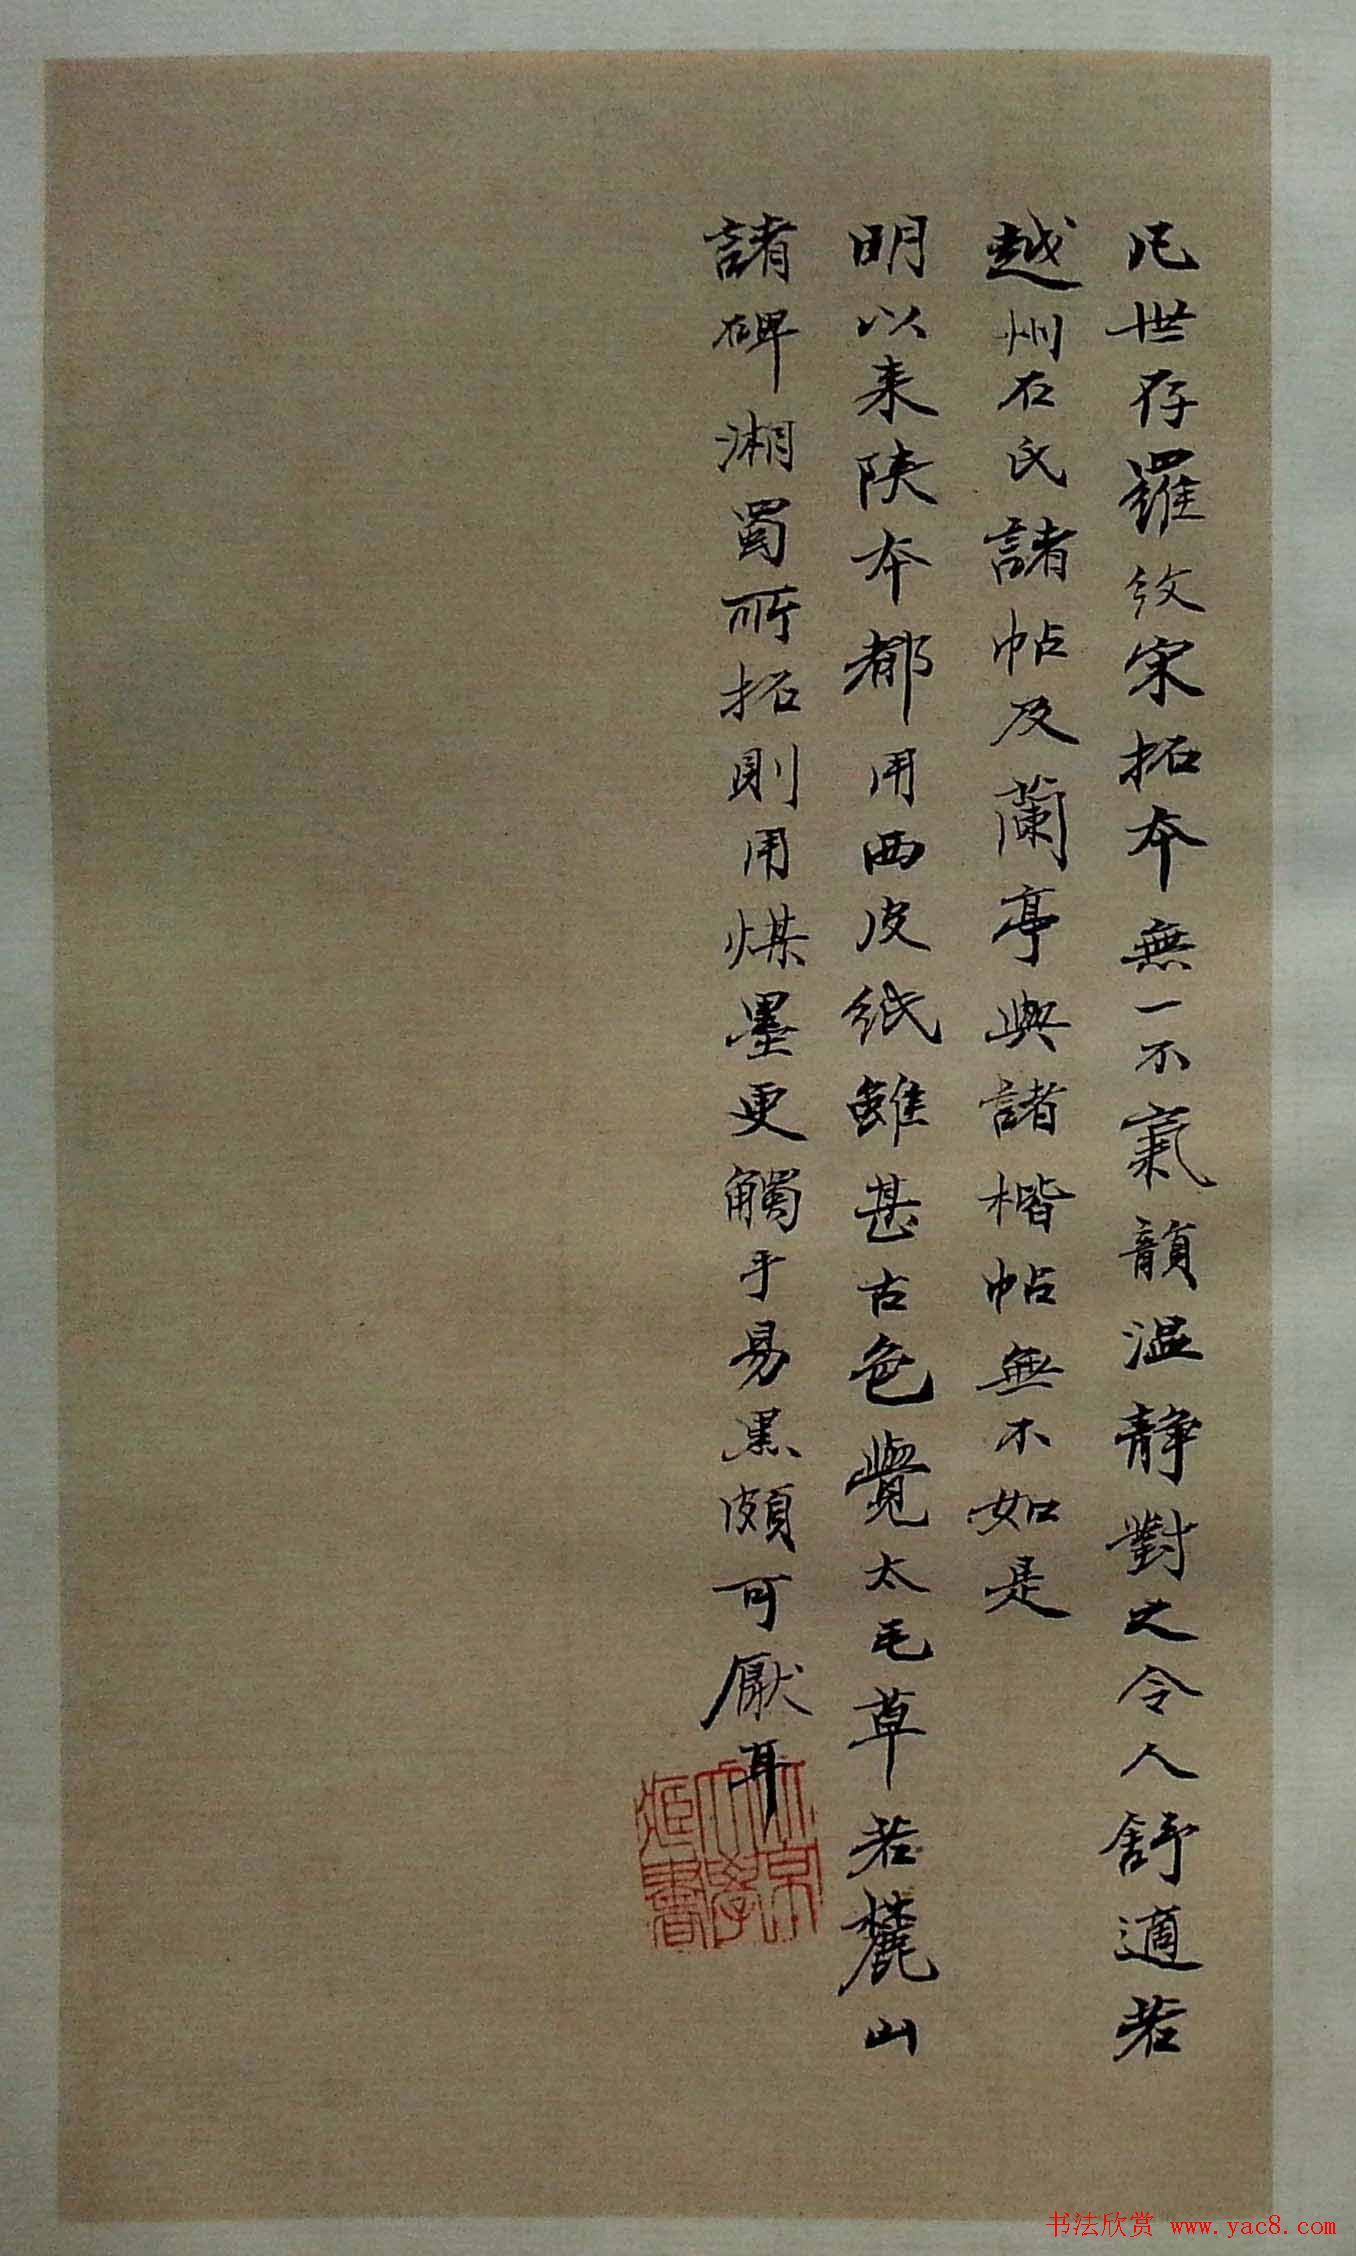 凡世存羅紋宋拓本無一不氣韻温静對之令人舒適若
越州石氏諸帖及蘭亭與諸楷帖無不如是
明以来陕本都用西皮纸雖甚古色覺太毛草若麓山
諸碑湘蜀所拓則用煤墨更觸手易黑頗可厭耳
书法欣赏 www.yac8.com